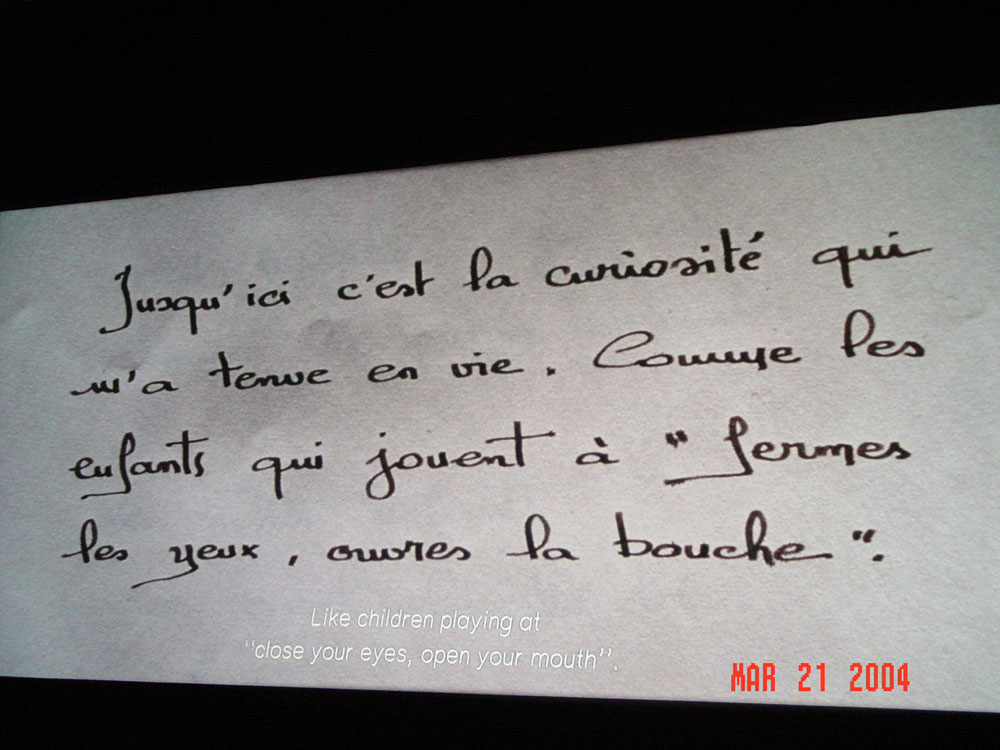 Jusqu'ici c'est la curiosité qui
m'a tenue en vie. Comme les
enfants qui jouent à "fermes
les yeux, ouvres la bouche".
Like children playing at
"close your eyes, open your mouth".
MAR 21 2004